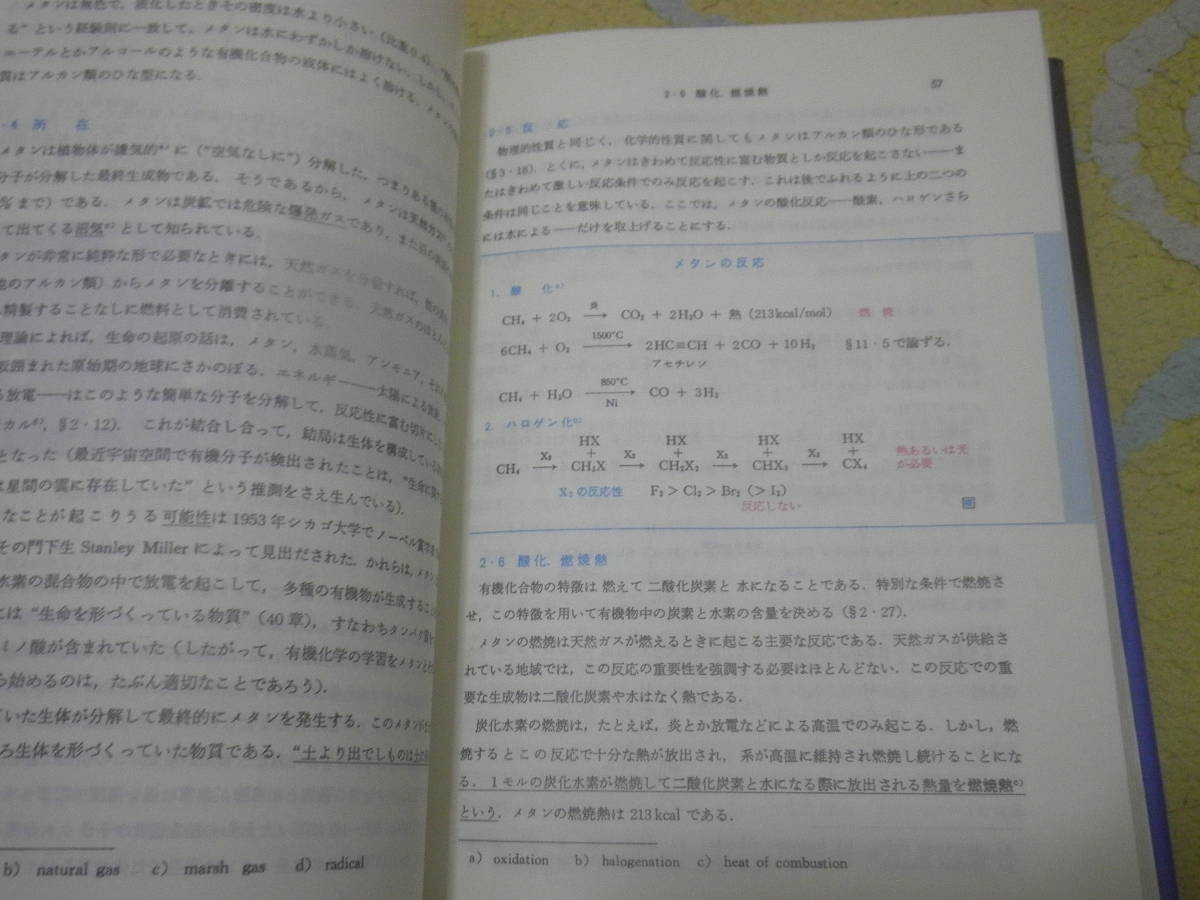 メタンは無色で，液化したときその密度は水より小さい（比重0.4）．
る”という経験則に一致して，メタンは水にわずかしか溶けない．しかし，
エーテルとかアルコールのような有機化合物の液体にはよく溶ける．メタンの
質はアルカン類のひな型になる．
・4 所 在
メタンは植物体が嫌気的に（“空気なしに”）分解した，つまりある種の
分子が分解した最終生成物である．そうであるから，メタンは天然ガス
％まで）である．メタンは炭鉱では危険な爆発ガスであり，また
て出てくる沼気c)として知られている．
タンが非常に純粋な形で必要なときには，天然ガスを分留すれば，他の
他のアルカン類）からメタンを分離することができる．天然ガスのほとんど
精製することなしに燃料として消費されている．
理論によれば，生命の起原の話は，メタン，水蒸気，アンモニア，
取囲まれた原始期の地球にさかのぼる．エネルギー――太陽による
る放電――はこのような簡単な分子を分解して，反応性に富む切片にし
カルd)，§2・12）．これが結合し合って，結局は生体を構成している
となった（最近宇宙空間で有機分子が検出されたことは，“生命に
は星間の雲に存在していた”という推測をさえ生んでいる）．
なことが起こりうる可能性は1953年シカゴ大学でノーベル賞学者
その門下生 Stanley Miller によって見出だされた．かれらは，メタン
水素の混合物の中で放電を起こして，多種の有機物が生成すること
には“生命を形づくっている物質”（40章），すなわちタンパク質
ミノ酸が含まれていた（したがって，有機化学の学習をメタンと
ら始めるのは，たぶん適切なことであろう）．
ていた生体が分解して最終的にメタンを発生する．このメタンが
ろ生体を形づくっていた物質である．“土より出でしものは土に
b) natural gas c) marsh gas d) radical
2・6 酸化．燃焼熱 57
2・5 反 応
物理的性質と同じく，化学的性質に関してもメタンはアルカン類のひな形である
（§3・18）．とくに，メタンはきわめて反応性に富む物質としか反応を起こさない――ま
たはきわめて激しい反応条件でのみ反応を起こす．これは後でふれるように上の二つの
条件は同じことを意味している．ここでは，メタンの酸化反応――酸素，ハロゲンさら
には水による――だけを取上げることにする．
メタンの反応
1. 酸 化a)
炎
CH₄ + 2O₂ → CO₂ + 2H₂O + 熱（213kcal/mol） 燃 焼
1500°C
6CH₄ + O₂ → 2HC≡CH + 2CO + 10H₂ §11・5で論ずる．
アセチレン
850°C
CH₄ + H₂O → CO + 3H₂
Ni
2. ハロゲン化b)
HX HX HX HX
X₂ + X₂ + X₂ + X₂ + 熱あるいは光
CH₄ → CH₃X → CH₂X₂ → CHX₃ → CX₄ が必要
X₂の反応性 F₂ > Cl₂ > Br₂ (> I₂)
反応しない
2・6 酸化．燃焼熱
有機化合物の特徴は燃えて二酸化炭素と水になることである．特別な条件で燃焼さ
せ，この特徴を用いて有機物中の炭素と水素の含量を決める（§2・27）．
メタンの燃焼は天然ガスが燃えるときに起こる主要な反応である．天然ガスが供給さ
れている地域では，この反応の重要性を強調する必要はほとんどない．この反応での重
要な生成物は二酸化炭素や水はなく熱である．
炭化水素の燃焼は，たとえば，炎とか放電などによる高温でのみ起こる．しかし，燃
焼するとこの反応で十分な熱が放出され，系が高温に維持され燃焼し続けることにな
る．1モルの炭化水素が燃焼して二酸化炭素と水になる際に放出される熱量を燃焼熱c)
という．メタンの燃焼熱は213kcalである．
a) oxidation b) halogenation c) heat of combustion